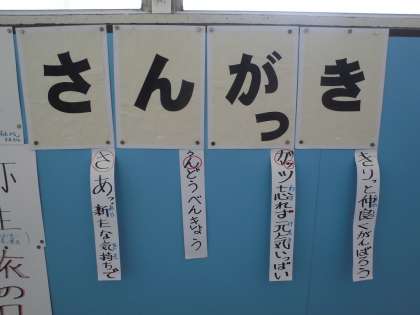 さんがっき
さあっ新たな気持ちで
んどうべんきょう
ガッツ忘れず元気いっぱい
きりっと仲良くがんばろう
弥生
旅の日